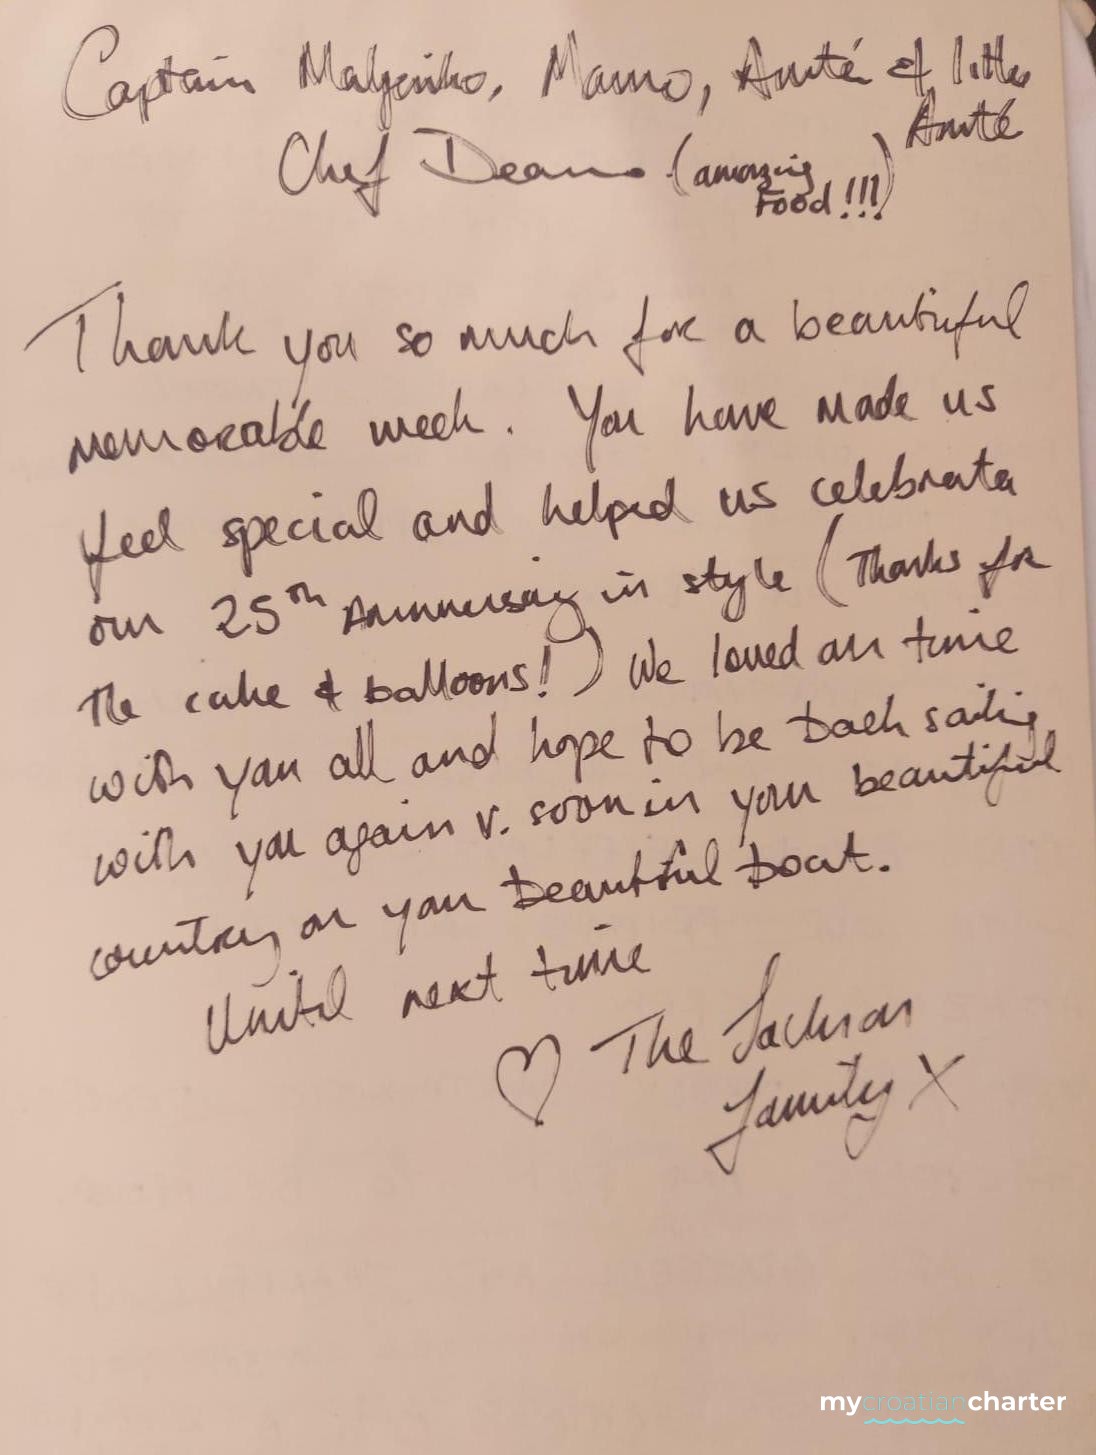 Captain Maljenko, Mamo, Anté & little
Anté
Chef Deano (amazing
Food!!!)
Thank you so much for a beautiful
memorable week. You have made us
feel special and helped us celebrate
our 25th Anniversay in style (Thanks for
the cake & balloons!) We loved our time
with you all and hope to be back sailing
with you again v. soon in your beautiful
country on your beautiful boat.
Until next time
♡ The Jackson
family X
mycroatiancharter